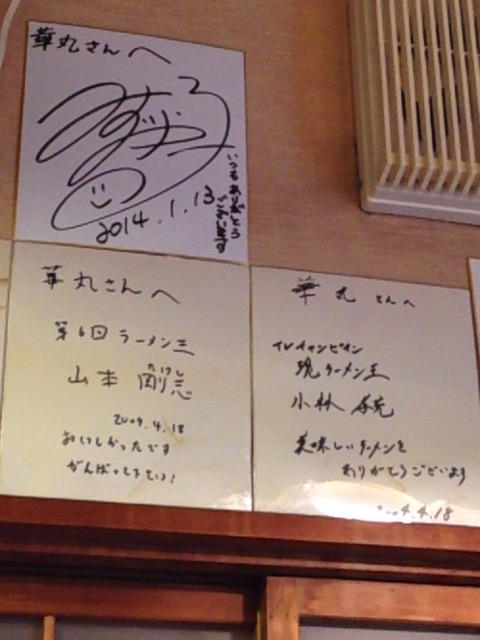 華丸さんへ
2014.1.13
いつもありがとう
ございます
華丸さんへ
第6回ラーメン王
山本剛志
たけし
2009.4.18
おいしかったです
がんばって下さい!
華丸さんへ
TVチャンピオン
現ラーメン王
小林
美味しいラーメンを
ありがとうございます
4.18